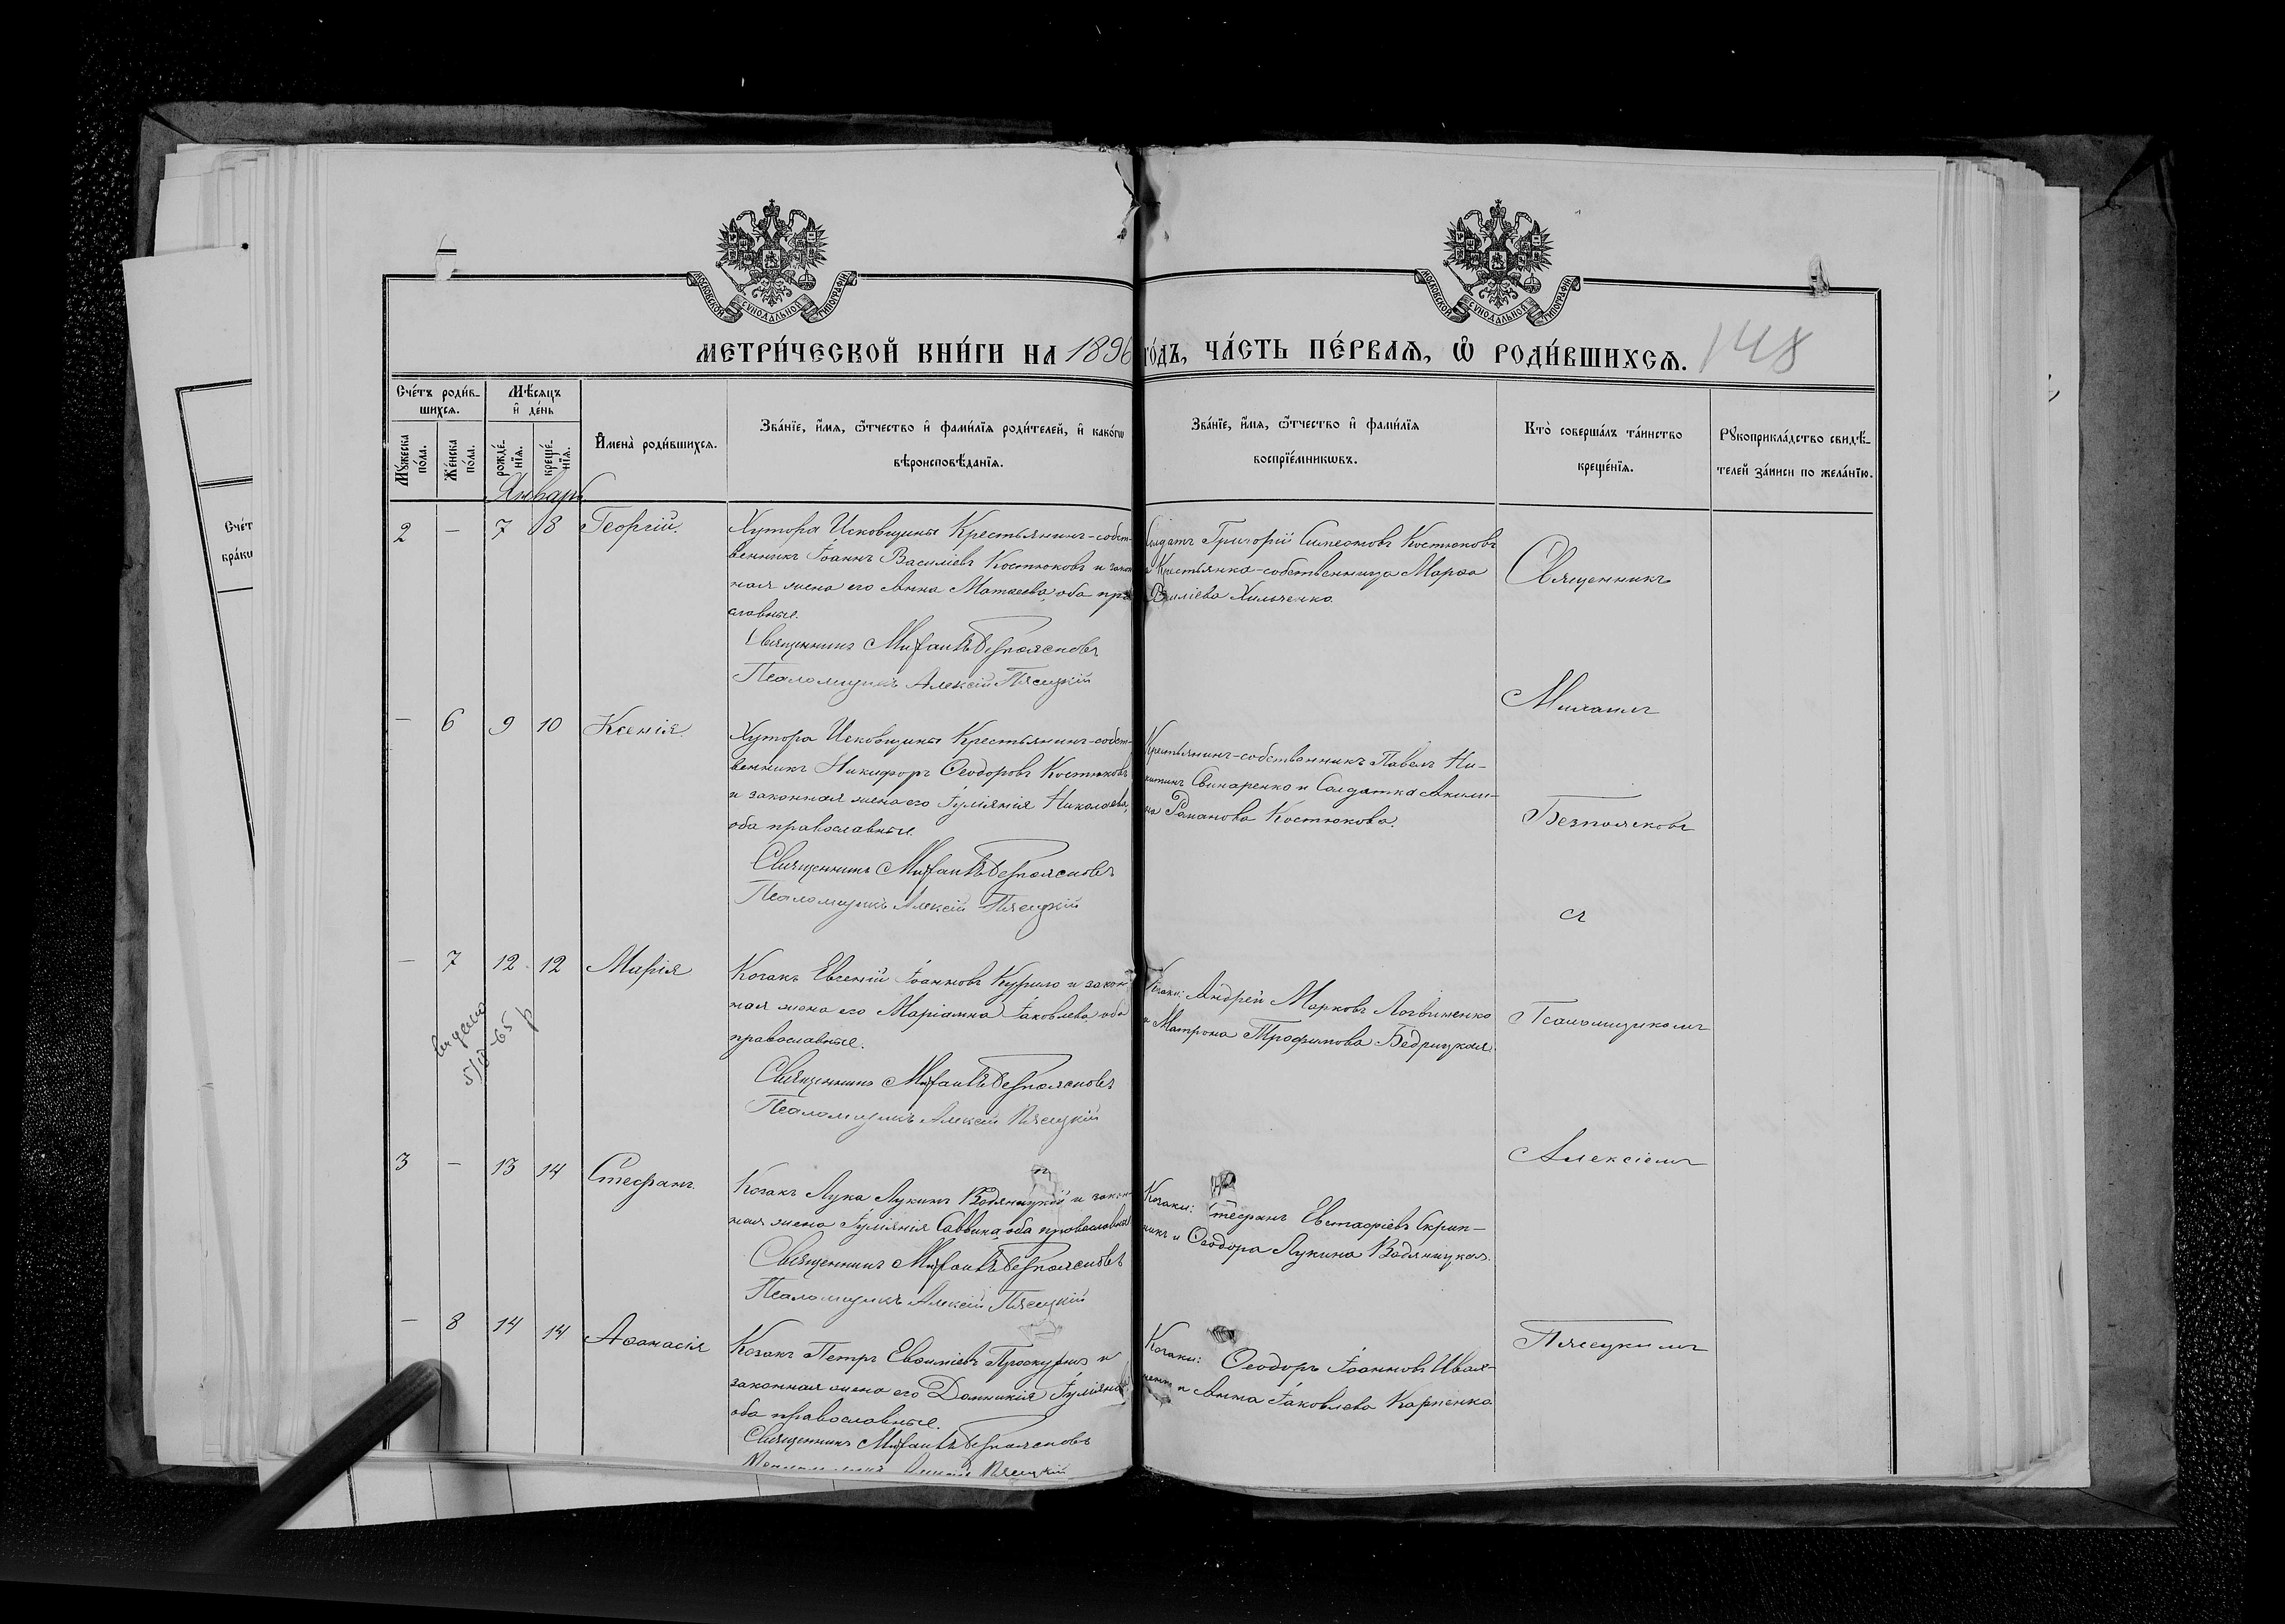 МОСКОВСКОЙ СѴНОДАЛЬНОЙ ТИПОГРАФІИ
МОСКОВСКОЙ СѴНОДАЛЬНОЙ ТИПОГРАФІИ
МЕТРИ́ЧЕСКОЙ КНИ́ГИ НА 1896 ГО́ДЪ, ЧА́СТЬ ПЕ́РВАѦ, Ѡ҆ РОДИ́ВШИХСѦ. 148
Сче́тъ роди́в-
шихсѧ.
Мѣ́сѧцъ
и҆ де́нь
Мꙋ́жеска по́ла.
Же́нска по́ла.
рожде́-
нїѧ.
креще́-
нїѧ.
И҆мена̀ роди́вшихсѧ.
Зва́нїе, и҆́мѧ, ѻ҆́тчество и҆ фами́лїѧ роди́телей, и҆ како́гѡ
вѣроисповѣ́данїѧ.
Зва́нїе, и҆́мѧ, ѻ҆́тчество и҆ фами́лїѧ
воспрїе́мникѡвъ.
Кто̀ соверша́лъ та́инство
креще́нїѧ.
Рꙋкоприкла́дство свидѣ́-
телей за́писи по жела́нїю.
Январь
2 — 7 8 Георгій.
Хутора Исковщины Крестьянинъ-собст-
венникъ Іоаннъ Василіевъ Костюковъ и закон
ная жена его Анна Матѳеева, оба пра
славные.
Священникъ Михаилъ Безпоясковъ
Псаломщикъ Алексій Пясецкій
Солдатъ Григорій Костюковъ
и Крестьянка-собственница Марѳа
Хильченко.
— 6 9 10 Ксенія.
Хутора Исковщины Крестьянинъ-собст-
венникъ Никифоръ Ѳеодоровъ Костюковъ
и законная жена его Іуліянія Николаева,
оба православные.
Священникъ Михаилъ Безпоясковъ
Псаломщикъ Алексій Пясецкій
Крестьянинъ-собственникъ Павелъ Ни-
китинъ Свинаренко и Солдатка Акили-
на Романова Костюкова.
— 7 12 12 Марія
Козакъ Евсеній Іоанновъ Курило и закон
ная жена его Маріамна Іаковлева, оба
православные.
Священникъ Михаилъ Безпоясковъ
Псаломщикъ Алексій Пясецкій
Козаки: Андрей Марковъ Логвиненко
и Матрона Трофимова Бедрицкая.
3 — 13 14 Стефанъ.
Козакъ Лука Лукинъ Водяницкій и закон-
ная жена Іуліянія Саввина, оба православные
Священникъ Михаилъ Безпоясковъ
Псаломщикъ Алексій Пясецкій
Козаки: Стефанъ Евстафіевъ Скрип-
никъ и Ѳеодора Лукина Водяницкая.
— 8 14 14 Аѳанасія
Козакъ Петръ Евѳиміевъ Проскурня и
законная жена его Домникія Іуліяно
оба православные.
Священникъ Михаилъ Безпоясковъ
Псаломщикъ Алексій Пясецкій
Козаки: Ѳеодоръ Іоанновъ Ивах-
ненко и Анна Іаковлева Карпенко
Священникъ
Михаилъ
Безпоясковъ
съ
Псаломщикомъ
Алексіемъ
Пясецкимъ